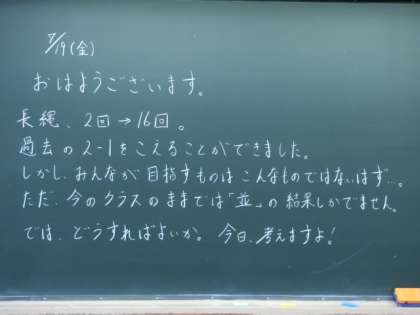 7/19(金)
おはようございます。
長縄、2回→16回。
過去の2-1をこえることができました。
しかし、みんなが目指すものはこんなものではないはず…。
ただ、今のクラスのままでは「並」の結果しかでません。
では、どうすればよいか。今日、考えますよ!